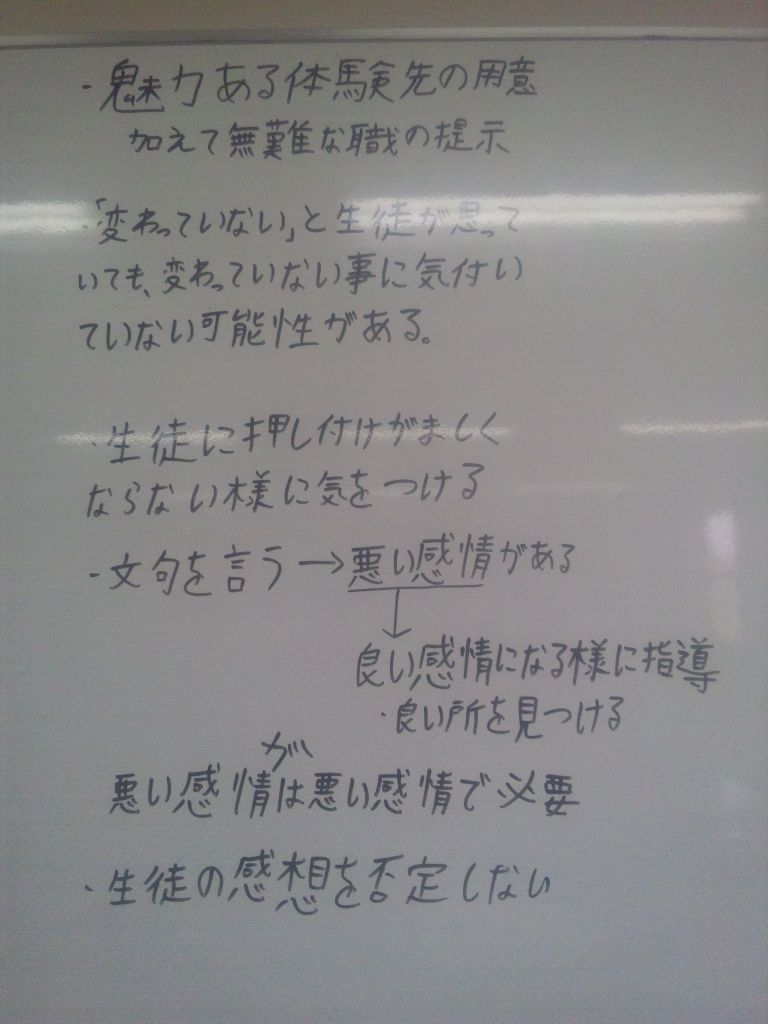 ・魅力ある体験先の用意
加えて無難な職の提示
・「変わっていない」と生徒が思って
いても、変わっていない事に気付い
ていない可能性がある。
・生徒に押し付けがましく
ならない様に気をつける
・文句を言う→悪い感情がある
↓
良い感情になる様に指導
・良い所を見つける
が
悪い感情は悪い感情で必要
・生徒の感想を否定しない